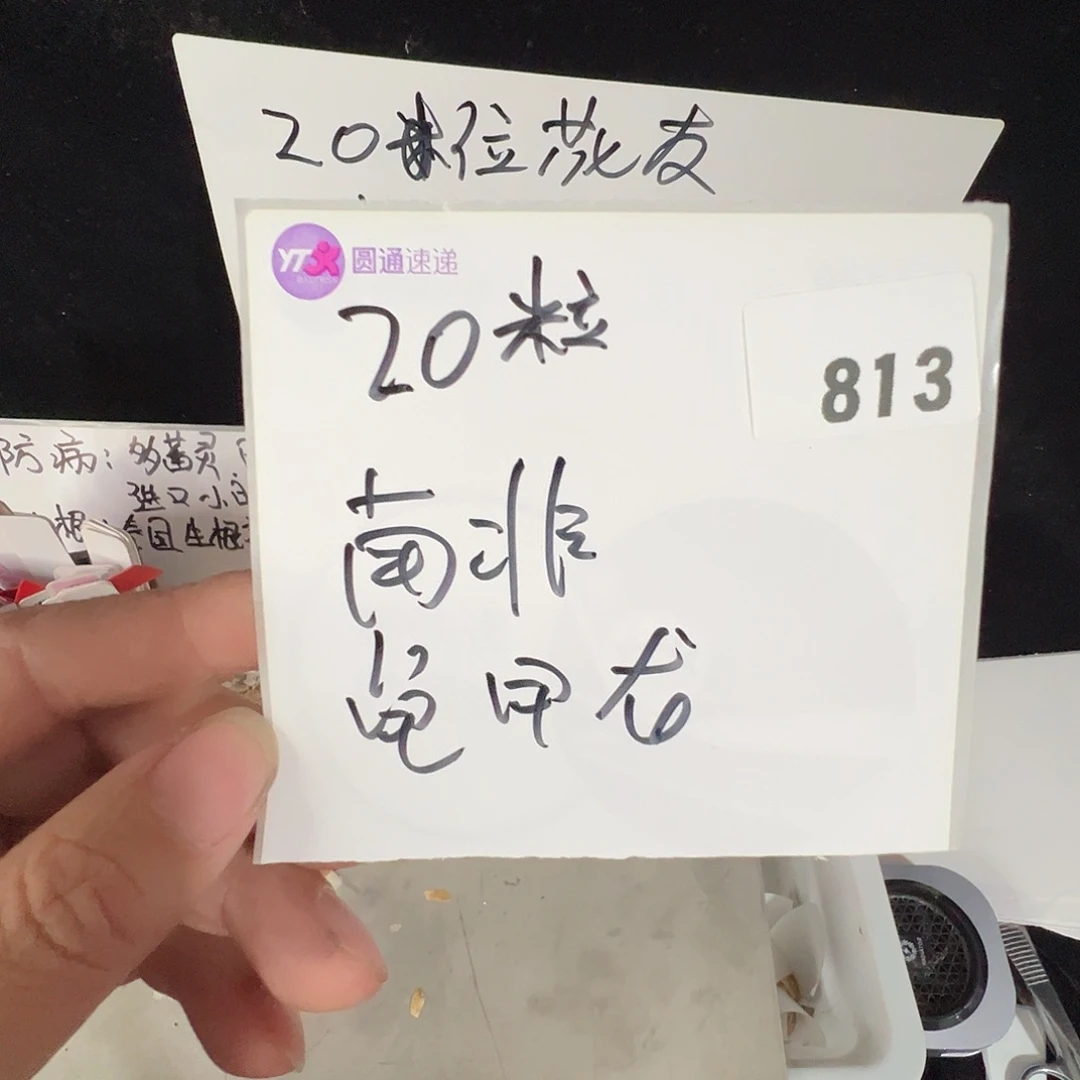 20位花友
YTO 圆通速递
20粒
813
南非
龟甲龙
防病：多菌灵
进口小白
生根